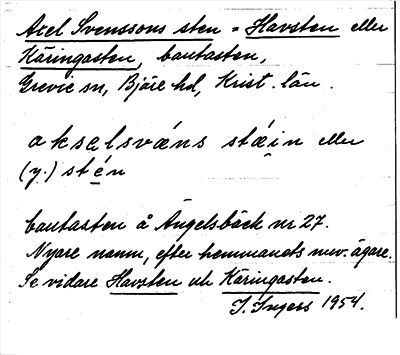 Axel Svenssons sten = Havsten eller
Käringasten, bautasten,
Grevie sn, Bjäre hd, Krist. län.
akselsvæns stæin eller
(y.) stén
bautasten å Ängelsbäck nr 27.
Nyare namn, efter hemmanets nuv. ägare.
Se vidare Havsten och Käringasten.
I. Ingers 1954.